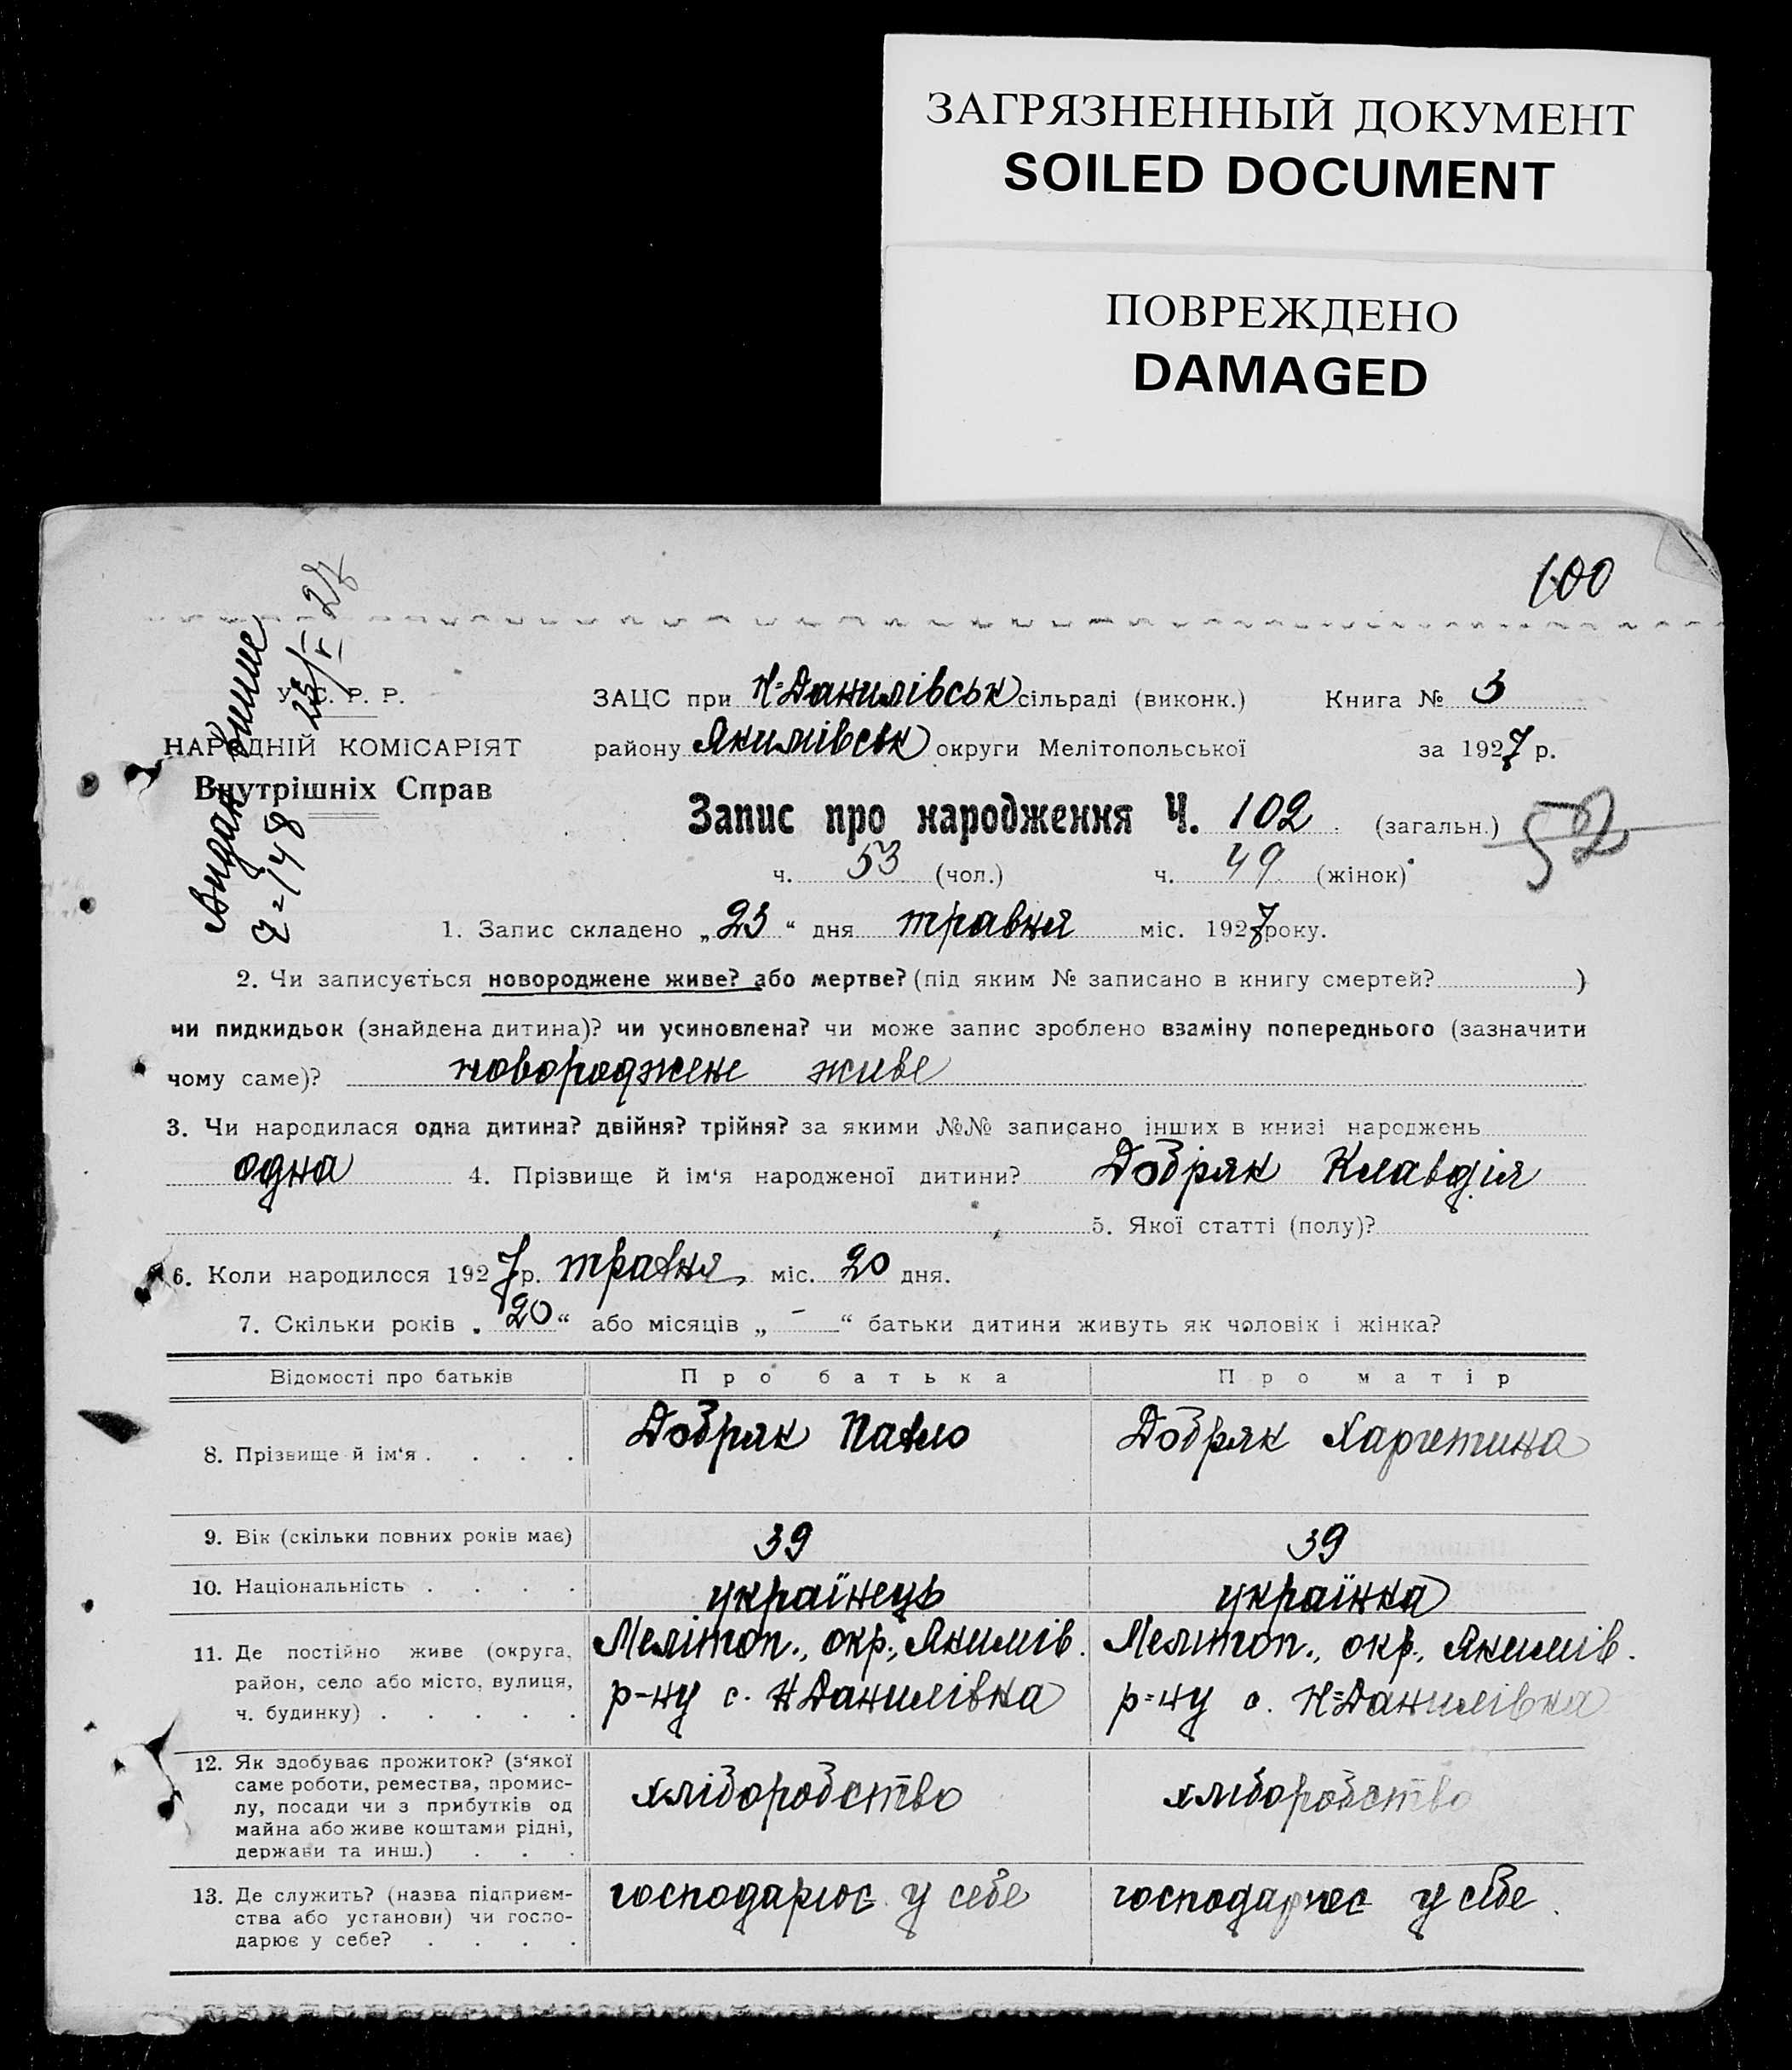 ЗАГРЯЗНЕННЫЙ ДОКУМЕНТ
SOILED DOCUMENT
ПОВРЕЖДЕНО
DAMAGED
100
У. С. Р. Р.
НАРОДНІЙ КОМІСАРІЯТ
Внутрішніх Справ
ЗАЦС при Н-Данилівськ сільраді (виконк.) Книга № 3
району Якимівськ округи Мелітопольської за 1927 р.
Запис про народження Ч. 102 (загальн.) 52
ч. 53 (чол.) ч. 49 (жінок)
1. Запис складено „23“ дня травня міс. 1927 року.
2. Чи записується новороджене живе? або мертве? (під яким № записано в книгу смертей? )
чи пидкидьок (знайдена дитина)? чи усиновлена? чи може запис зроблено взаміну попереднього (зазначити
чому саме)? новороджене живе
3. Чи народилася одна дитина? двійня? трійня? за якими №№ записано інших в книзі народжень
одна 4. Прізвище й ім‘я народженої дитини? Добряк Клавдія
5. Якої статті (полу)?
6. Коли народилося 1927 р. травня міс. 20 дня.
7. Скільки років „20“ або місяців „ – “ батьки дитини живуть як чоловік і жінка?
Відомості про батьків Про батька Про матір
8. Прізвище й ім‘я . . . . Добряк Павло Добряк Харетина
9. Вік (скільки повних років має) 39 39
10. Національність . . . . українець українка
11. Де постійно живе (округа, Мелітоп., окр., Якимів. Мелітоп., окр., Якимів.
район, село або місто, вулиця, р-ну с. Н Данилівка р-ну с. Н-Данилівка
ч. будинку) . . . . .
12. Як здобуває прожиток? (з‘якої
саме роботи, ремества, промис-
лу, посади чи з прибутків од хлібородство хлібородство
майна або живе коштами рідні,
держави та инш.) . . .
13. Де служить? (назва підприєм- господарює у себе господарює у себе
ства або установи) чи госпо-
дарює у себе? . . . .